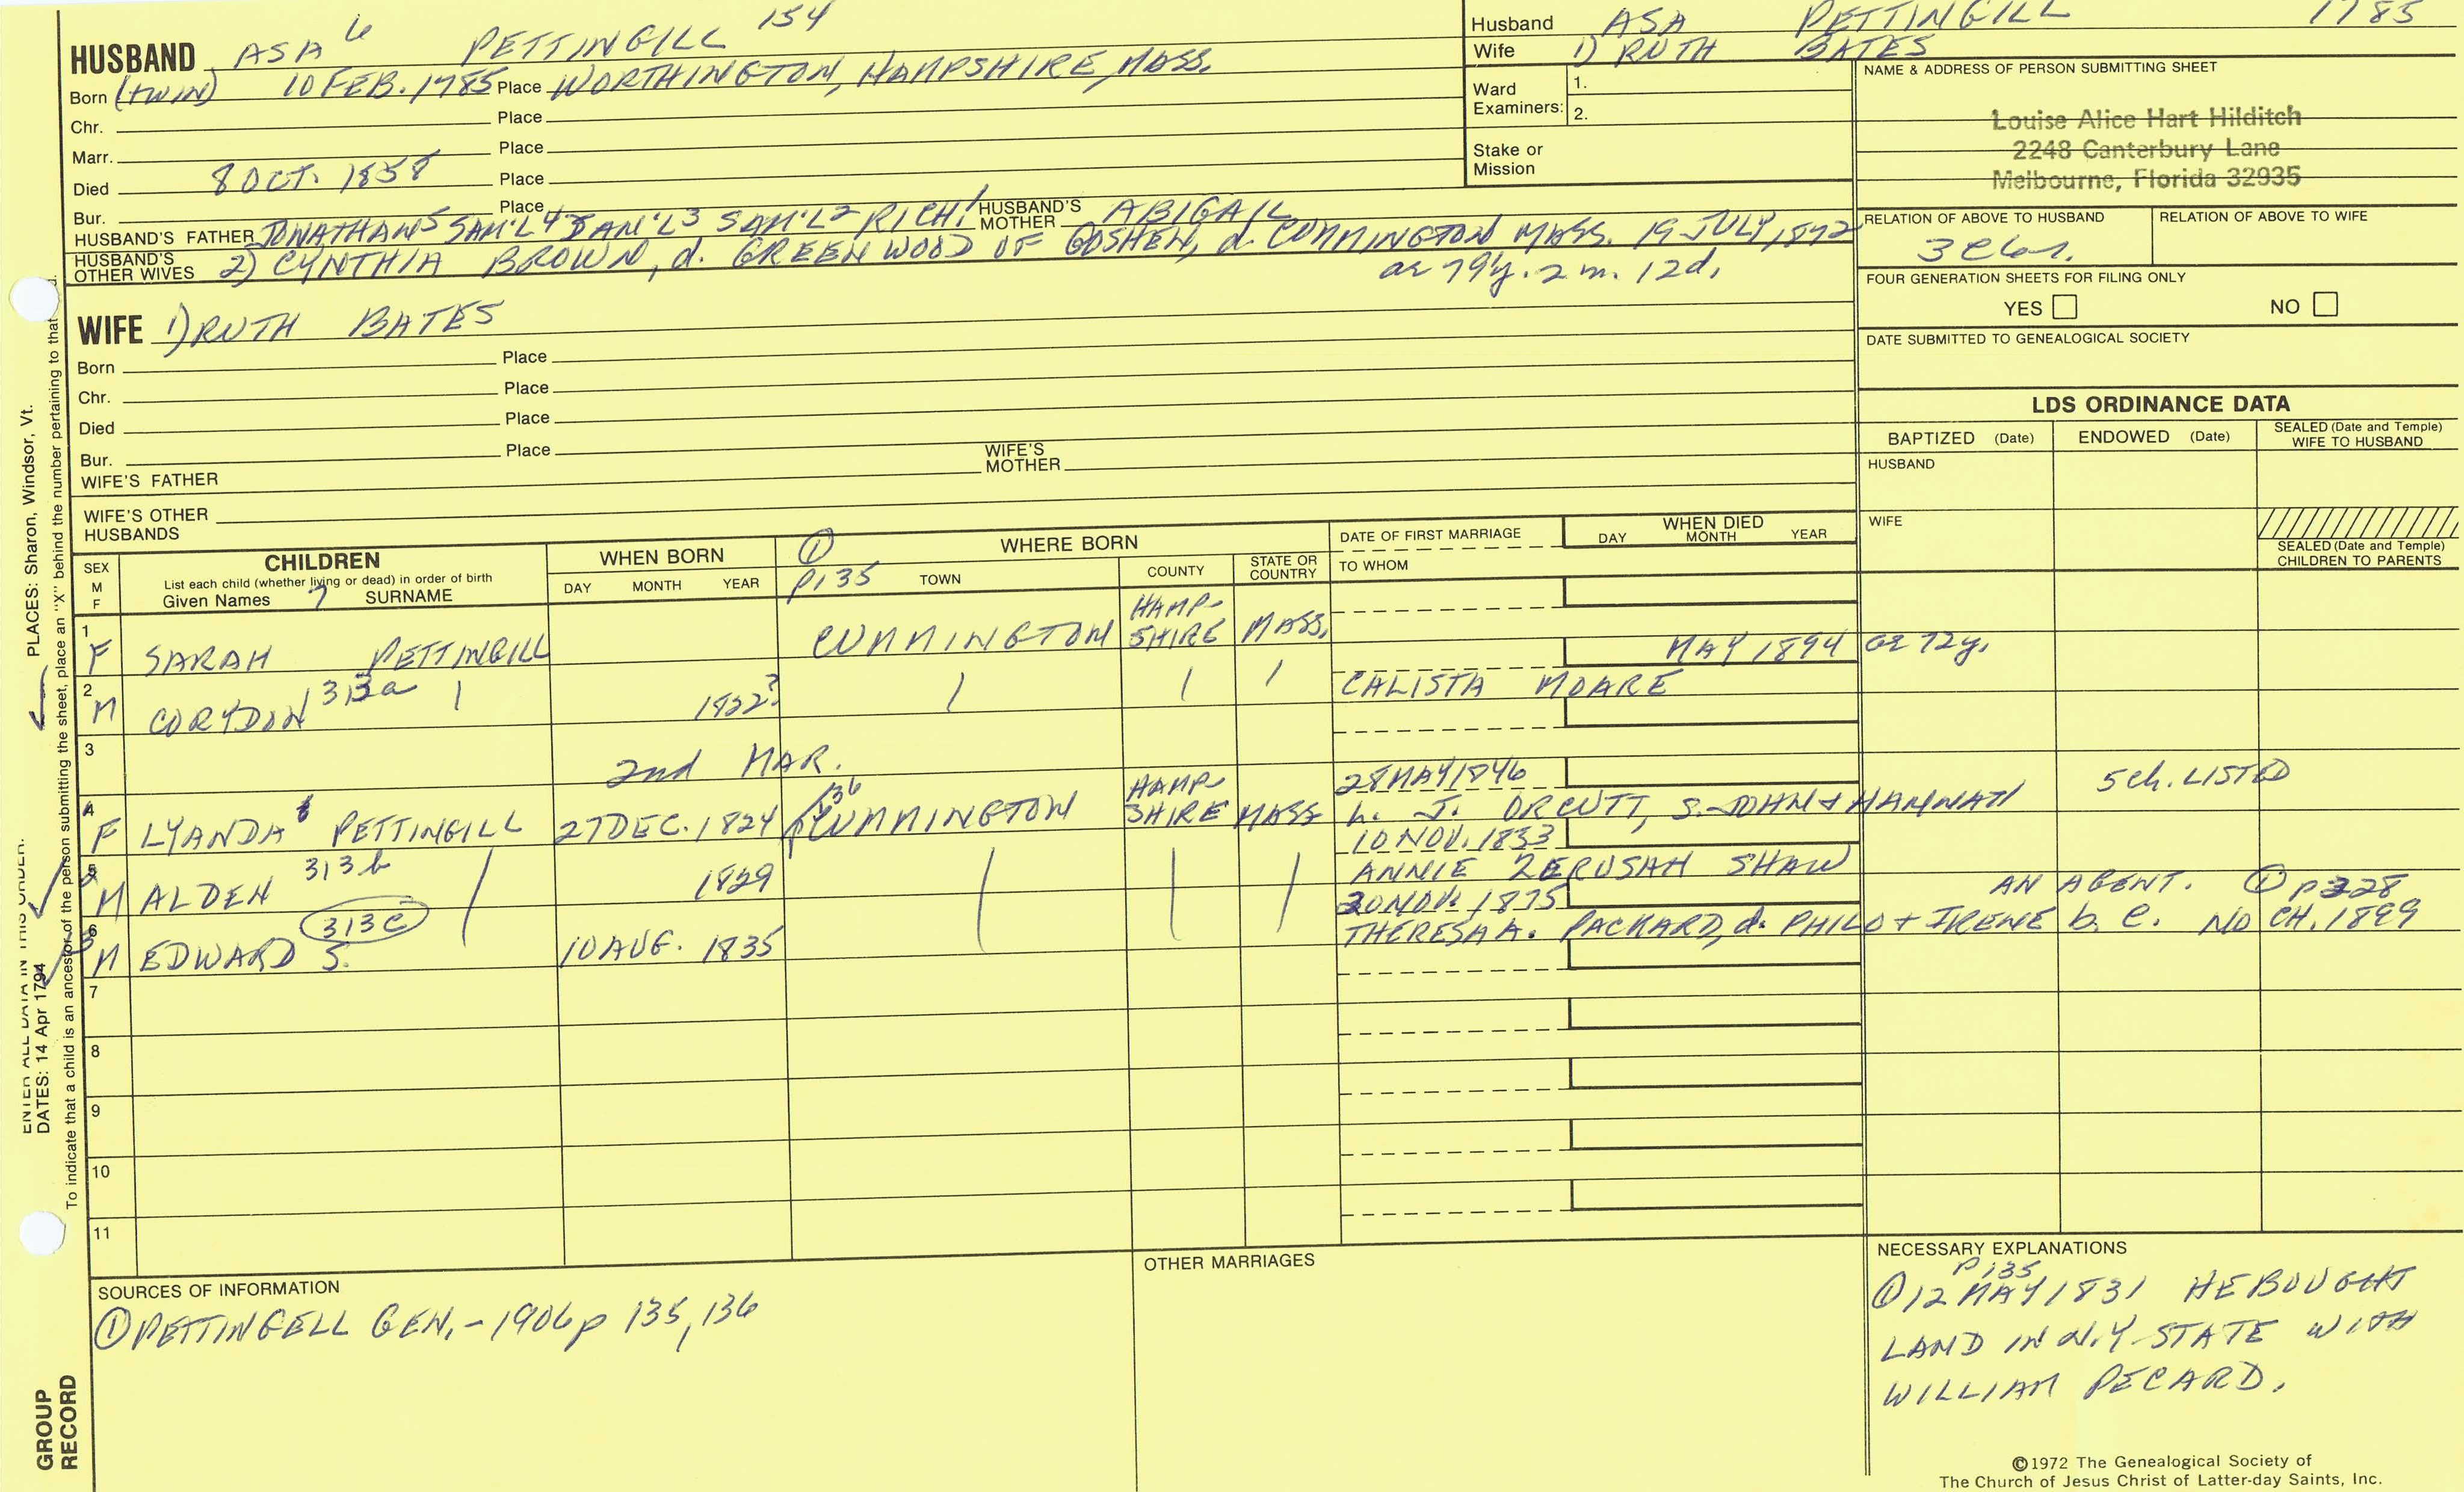 HUSBAND ASA 6 PETTINGILL 154
Born (TWIN) 10 FEB. 1785 Place WORTHINGTON, HAMPSHIRE, MASS.
Chr. Place
Marr. Place
Died 8 OCT. 1858 Place
Bur. Place
HUSBAND'S FATHER JONATHAN5 SAM'L4 DAN'L3 SAM'L2 RICH.1 HUSBAND'S MOTHER ABIGAIL
HUSBAND'S OTHER WIVES 2) CYNTHIA BROWN, d. GREENWOOD OF GOSHEN, d. CUMMINGTON MASS. 19 JULY, 1872
ae 79y. 2 m. 12d.
Husband ASA PETTINGILL 1785
Wife 1) RUTH BATES
Ward Examiners: 1.
2.
Stake or Mission
NAME & ADDRESS OF PERSON SUBMITTING SHEET
Louise Alice Hart Hilditch
2248 Canterbury Lane
Melbourne, Florida 32935
RELATION OF ABOVE TO HUSBAND RELATION OF ABOVE TO WIFE
FOUR GENERATION SHEETS FOR FILING ONLY
YES NO
DATE SUBMITTED TO GENEALOGICAL SOCIETY
WIFE 1) RUTH BATES
Born Place
Chr. Place
Died Place
Bur. Place
WIFE'S FATHER WIFE'S MOTHER
WIFE'S OTHER HUSBANDS
LDS ORDINANCE DATA
BAPTIZED (Date) ENDOWED (Date) SEALED (Date and Temple) WIFE TO HUSBAND
HUSBAND
WIFE
SEALED (Date and Temple) CHILDREN TO PARENTS
SEX M F
CHILDREN
List each child (whether living or dead) in order of birth
Given Names 7 SURNAME
WHEN BORN
DAY MONTH YEAR
① p135
WHERE BORN
TOWN COUNTY STATE OR COUNTRY
DATE OF FIRST MARRIAGE
TO WHOM
WHEN DIED
DAY MONTH YEAR
1 F SARAH PETTINGILL CUMMINGTON HAMP-SHIRE MASS.
MAY 1894 ae 72y.
2 M CORYDON 313a 1822? CALISTA MOARE
3 2nd MAR.
28 MAY 1846
4 F LYANDA PETTINGILL 27 DEC. 1824 p136 CUMMINGTON HAMP-SHIRE MASS L. J. ORCUTT, S. JOHN + HANNAH 5 ch. LISTED
10 NOV. 1853
5 M ALDEN 313b 1829 ANNIE ZERUSAH SHAW
AN AGENT. ① p328
30 NOV. 1875
6 M EDWARD S. 313c 10 AUG. 1835 THERESA A. PACKARD, d. PHILO + IRENE b. C. NO CH. 1899
7
8
9
10
11
SOURCES OF INFORMATION
① PETTINGELL GEN. - 1906 p 135, 136
OTHER MARRIAGES
NECESSARY EXPLANATIONS
p135
① 12 MAY 1831 HE BOUGHT
LAND IN N.Y STATE WITH
WILLIAM PECARD.
©1972 The Genealogical Society of
The Church of Jesus Christ of Latter-day Saints, Inc.
PLACES: Sharon, Windsor, Vt.
ENTER ALL DATA IN THIS ORDER:
DATES: 14 Apr 1794
To indicate that a child is an ancestor of the person submitting the sheet, place an "X" behind the number pertaining to that
GROUP
RECORD